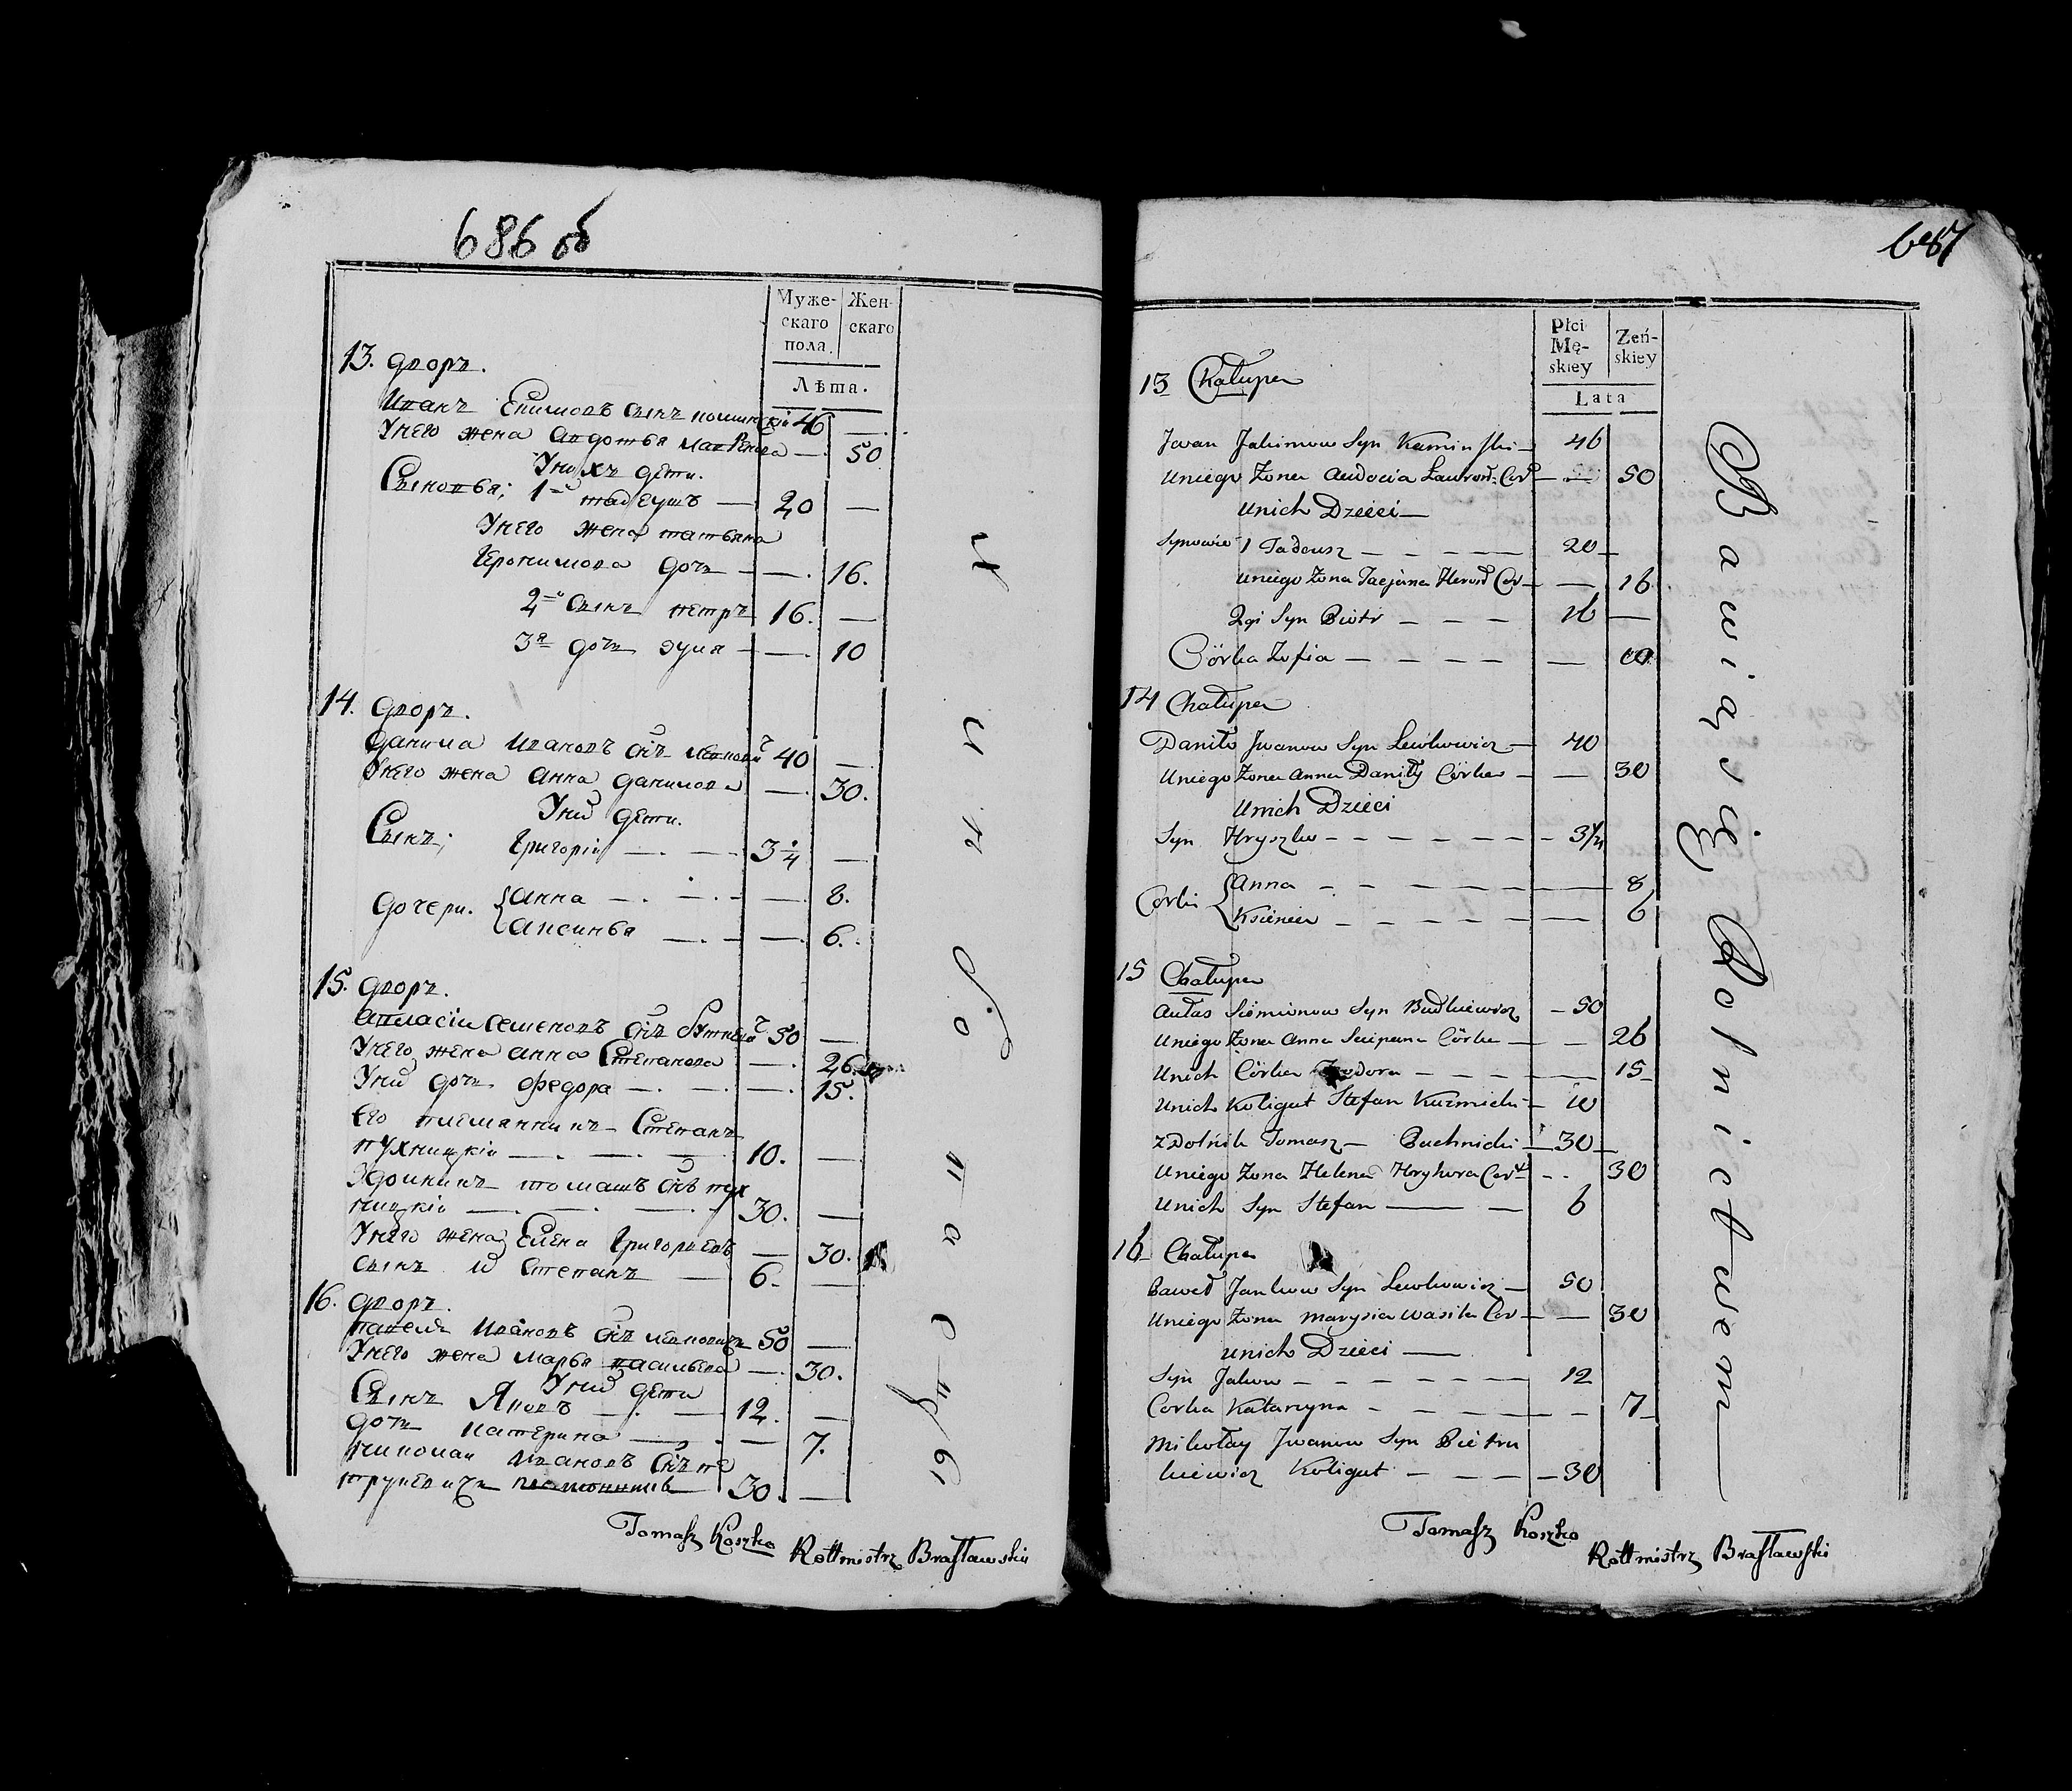 686 об
Муже-
скаго
пола.
Жен-
скаго
Лѣта.
13. дворъ.
Иванъ Екимовъ сынъ 46 —
У него жена Авдотья — 50
У нихъ дети.
Сыновья; 1й тадеушъ — 20 —
У него жена татьяна
Иеронимова дочь — — 16.
2й сынъ петръ 16. —
3я дочь зуия — — 10
14. дворъ.
Данила Ивановъ снъ 40 —
У него жена анна данилова — 30.
У них дети.
Сынъ; Григорій — — 3 1/4 —
дочери. анна — — — 8.
аксинья — — — 6.
15. дворъ.
Афласіи Семеновъ снъ 50 —
У него жена анна Степанова — 26.
У них дочь федора — — — 15.
Его племянникъ Степанъ
пухницкіи — — — 10. —
Здолникъ томашъ снъ пух
ницкіи — — — 30. —
У него жена Елена Григорьевъ — 30.
сынъ и Степанъ — 6. —
16. дворъ.
павелъ Ивановъ снъ 50 —
У него жена марья васильева — 30.
У них дети
Сынъ Яковъ — — 12. —
дочь катерина — — — 7.
николаи Ивановъ снъ пе
трукевичъ 30. —
Tomasz Koszko Rottmistrz Brasławski
687
Płci
Mę-
skiey
Zeń-
skiey
Lata
13 Chałupa
Jwan Jakimow Syn Kaminski — 46
Uniego Żona Audocia Ławron. Cor — — 50
Unich Dzieci —
Synowie 1 Tadeusz — — — — 20 —
Uniego Żona Tacjana Cor — — 16
2gi Syn Piotr — — — 16 —
Córka Zofia — — — — — 10
14 Chałupa
Daniło Jwanow Syn Lewkowicz — 40
Uniego Żona Anna Daniły Córka — — 30
Unich Dzieci
Syn Hryszko — — — — — — 3 1/4
Corki Anna — — — — — — 8
Ksienia — — — — — — 6
15 Chałupa
Aułas Siemionow Syn Budkiewicz — 50
Uniego Żona Anna Sciepana Córka — — 26
Unich Córka Teodora — — — — — 15 —
Unich Koligat Stefan Kuzmicki — 10
zDolnik Tomasz — Puchnicki — 30 —
Uniego Żona Helena Hryhora Cor — — 30
Unich Syn Stefan — — 6
16 Chałupa
Paweł Jankow Syn Lewkowicz — 50
Uniego Żona Marysia Wasila Cor — — 30
Unich Dzieci —
Syn Jakow — — — — — — 12
Corka Katarzyna — — — — — 7 —
Mikołay Jwanow Syn Pietru
kiewicz Koligat — — — — 30
Bawią się Rolnictwem
Tomasz Koszko Rottmistrz Brasławski